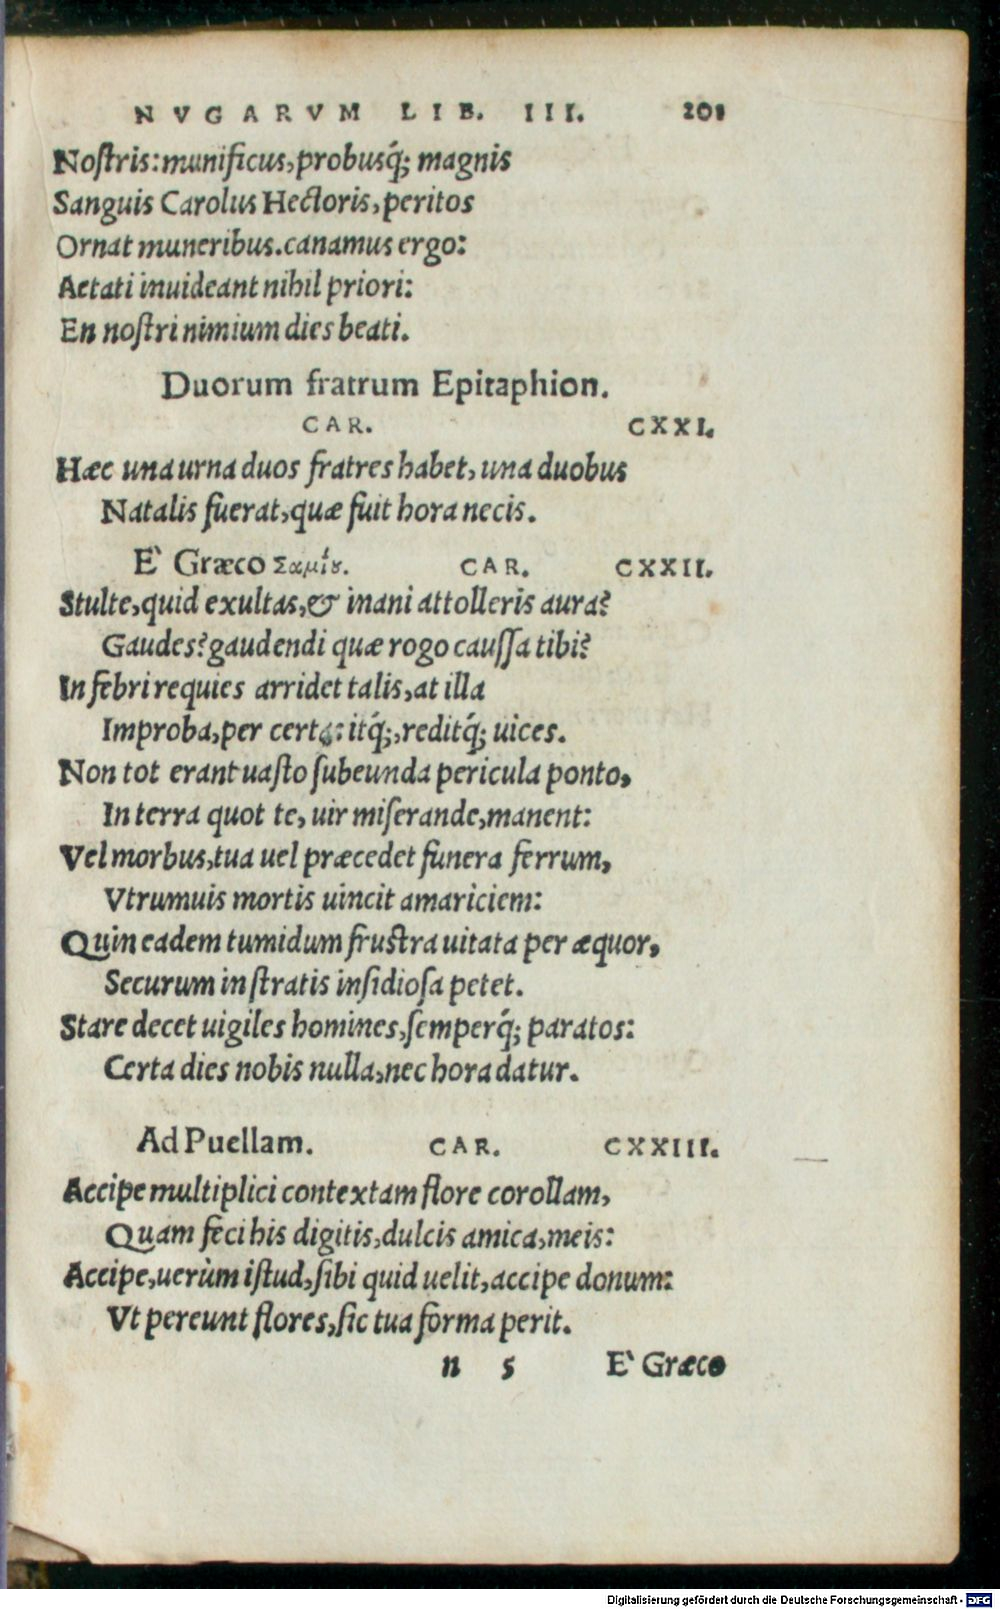 NVGARVM LIB. III. 201
Noſtris: munificus, probusq́; magnis
Sanguis Carolus Hectoris, peritos
Ornat muneribus. canamus ergo:
Aetati inuideant nihil priori:
En noſtri nimium dies beati.
Duorum fratrum Epitaphion.
CAR. CXXI.
Hæc una urna duos fratres habet, una duobus
Natalis fuerat, quæ fuit hora necis.
E' Græco Σαμίȣ. CAR. CXXII.
Stulte, quid exultas, & inani attolleris aura?
Gaudes? gaudendi quæ rogo cauſſa tibi?
In febri requies arridet talis, at illa
Improba, per certas itq́;, reditq́; uices.
Non tot erant uaſto ſubeunda pericula ponto,
In terra quot te, uir miſerande, manent:
Vel morbus, tua uel præcedet funera ferrum,
Vtrumuis mortis uincit amariciem:
Quin eadem tumidum fruſtra uitata per æquor,
Securum in ſtratis inſidioſa petet.
Stare decet uigiles homines, ſemperq́; paratos:
Certa dies nobis nulla, nec hora datur.
Ad Puellam. CAR. CXXIII.
Accipe multiplici contextam flore corollam,
Quam feci his digitis, dulcis amica, meis:
Accipe, uerùm iſtud, ſibi quid uelit, accipe donum:
Vt pereunt flores, ſic tua forma perit.
n 5 E' Græco
Digitalisierung gefördert durch die Deutsche Forschungsgemeinschaft - DFG